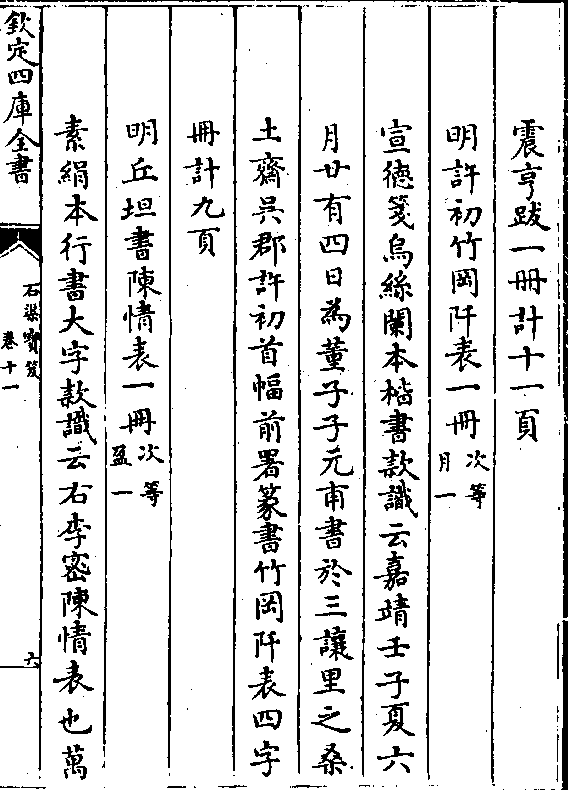 震亨跋一冊計十一頁
明許初竹岡阡表一冊次等月一
宣德箋烏絲闌本楷書款識云嘉靖壬子夏六
月廿有四日為董子子元甫書於三讓里之桑
土齋吳郡許初首幅前署篆書竹岡阡表四字
冊計九頁
明丘坦書陳情表一冊次等盈一
素絹本行書大字款識云右李密陳情表也萬
欽定四庫全書
石渠寶笈
卷十一
六